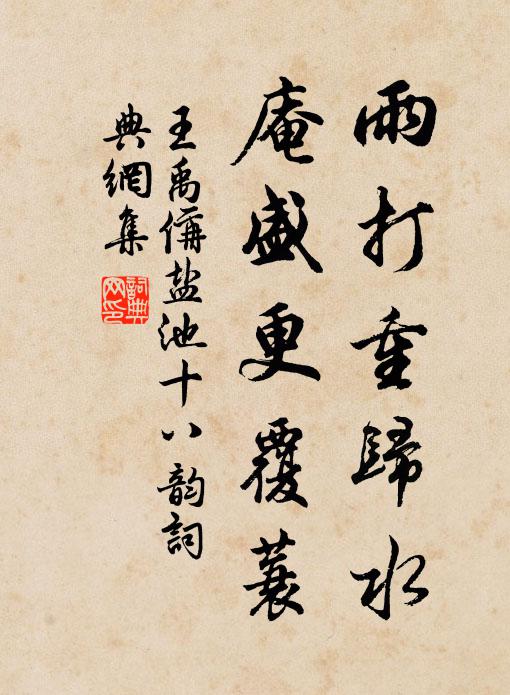 雨打重歸水
庵盛更覆蓑
王禹偁盐池十八韵詞
典網集
詞典网印